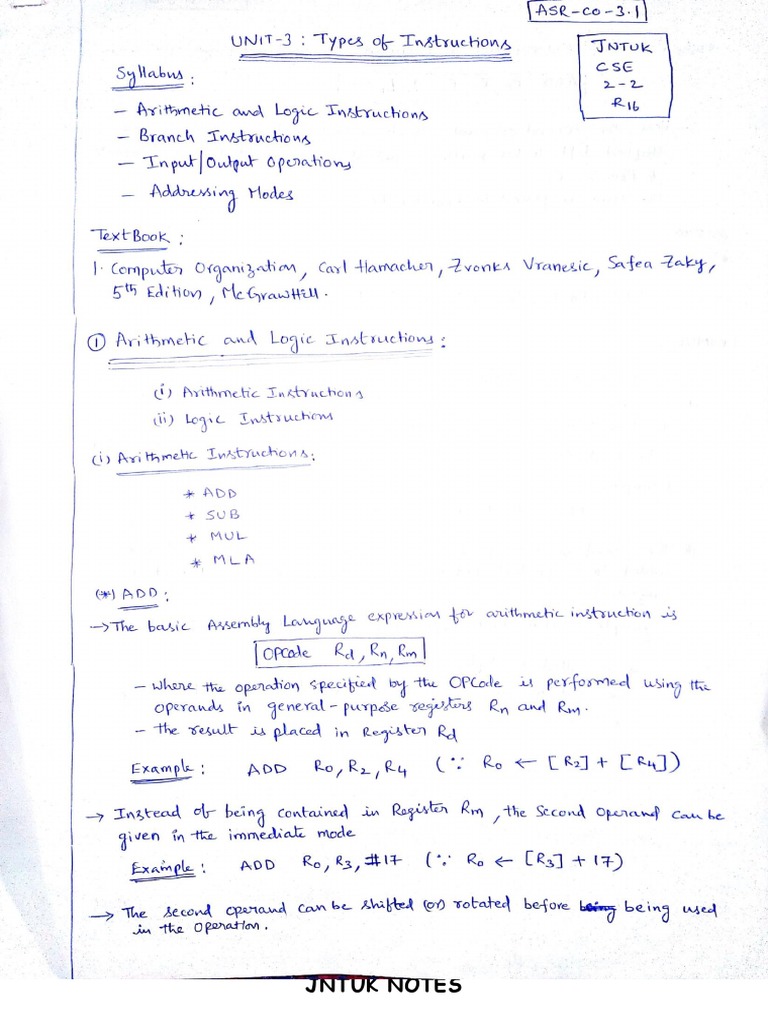 ASR-CO-3.1
UNIT-3 : Types of Instructions
JNTUK
CSE
2-2
R16
Syllabus :
- Arithmetic and Logic Instructions
- Branch Instructions
- Input/Output Operations
- Addressing Modes
TextBook :
1. Computer Organization, Carl Hamacher, Zvonks Vranesic, Safea Zaky,
5th Edition, McGrawHill.
① Arithmetic and Logic Instructions :
(i) Arithmetic Instructions
(ii) Logic Instructions
(i) Arithmetic Instructions :
* ADD
* SUB
* MUL
* MLA
(*) ADD :
→ The basic Assembly Language expression for arithmetic instruction is
OPCode Rd, Rn, Rm
- where the operation specified by the OPCode is performed using the
operands in general-purpose registers Rn and Rm.
- the result is placed in Register Rd
Example : ADD R0, R2, R4 (∵ R0 ← [R2] + [R4])
→ Instead of being contained in Register Rm, the second operand can be
given in the immediate mode
Example : ADD R0, R3, #17 (∵ R0 ← [R3] + 17)
→ The second operand can be shifted (or) rotated before being being used
in the operation.
JNTUK NOTES